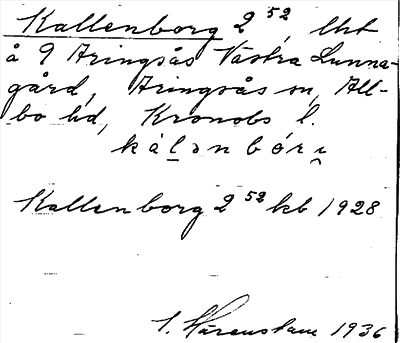 Kallenborg 2 52, lht
å 9 Aringsås Västra Lunna-
gård, Aringsås sn, All-
bo hd, Kronobs l.
kálɘnbórı̯
Kallenborg 2 52 kb 1928
1936